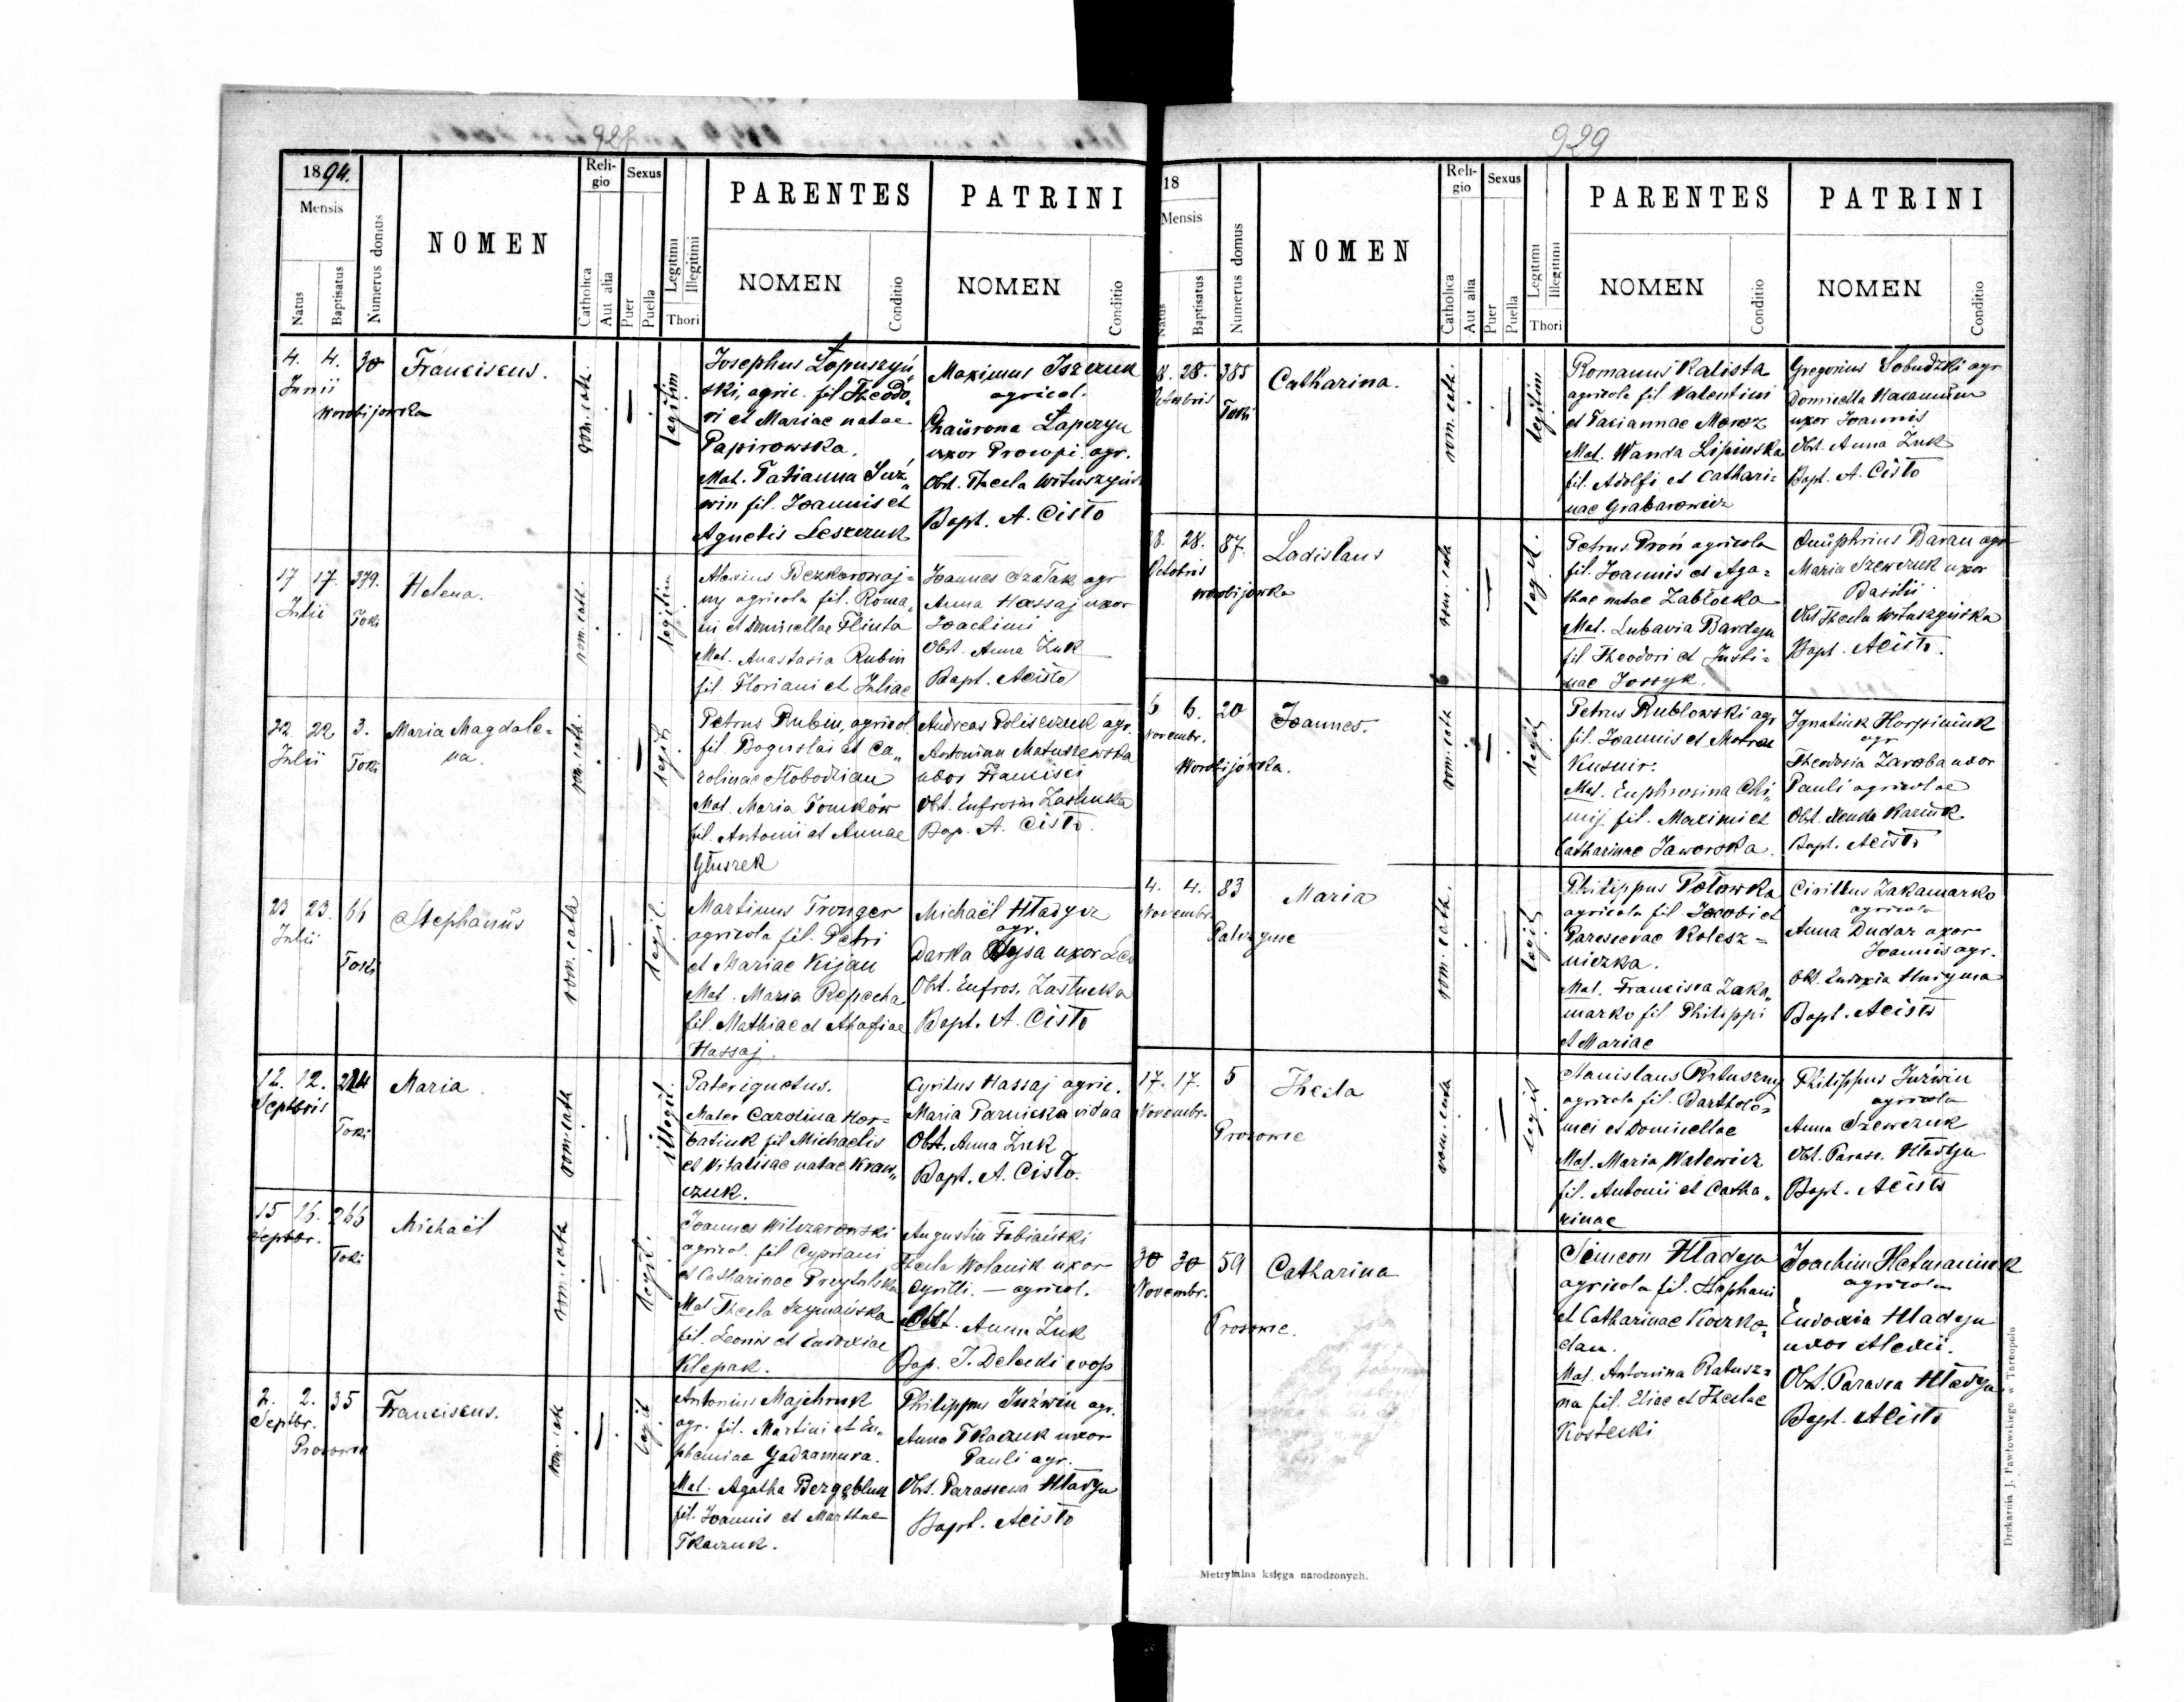 928
1894.
Mensis
Natus
Baptisatus
Numerus domus
NOMEN
Reli-
gio
Catholica
Aut alia
Sexus
Puer
Puella
Legitimi
Illegitimi
Thori
PARENTES
NOMEN
Conditio
PATRINI
NOMEN
Conditio
4. 4. 30 Franciscus.
Junii
Worobijowka
rom. cath.
legitim
Josephus Łopuszyń„
ski, agric. fil Theodo„
ri et Mariae natae
Papirowska.
Mat. Tatianna Juź„
win fil. Joannis et
Agnetis Leszczuk
Maximus
agricol.
Łapczyn
uxor Procopi. agr.
Obst. Thecla
Bapt. A. Cisło
17 17. 379. Helena.
Julii
Toki
rom. cath.
legitim
Alexius Bezkorowaj=
ny agricola fil. Roma„
ni et Domicellae Flinta
Mat. Anastasia Rubin
fil. Floriani et Juliae
Joannes agr
Anna Hassaj uxor
Joachimi
Obst. Anna Żuk
Bapt. A Cisło
22 22 3. Maria Magdale=
na.
Julii
Toki
rom. cath.
legit
Petrus Rubin, agricol
fil. Boguslai et Ca„
rolinae Słobodian
Mat. Maria Tomków
fil. Antonii et Annae
Głuszek
Andreas Poliszczuk agr.
Antonian Matuszewska
uxor Francisci
Obst. Eufrosin Zastucka
Bap. A. Cisło.
23 23. 66 Stephanus
Julii
Toki
rom. cath
legit.
Martinus Tronger
agricola fil. Petri
et Mariae Kijan
Mat. Maria Repecha
fil. Mathiae et Ahafiae
Hassaj.
Michaël Hładycz
agr.
Darka uxor
Obst. Eufros. Zastucka
Bapt. A. Cisło
12. 12. 214 Maria.
Septbris
Toki
rom. cath
illegit.
Pater ignotus.
Mater Carolina Hor=
batiuk fil Michaelis
et Vitalisae natae Kraw„
czuk.
Cyrilus Hassaj agric.
Maria Parnicka vidua
Obst. Anna Żuk
Bapt. A. Cisło.
15 16. 266 Michaël
Septbr.
Toki
rom. cath
legit.
Joannes Wilczarowski
agricol. fil Cypriani
et Catharinae
Mat Thecla Szymańska
fil. Leonis et Eudoxiae
Klepak.
Augustin Fabiański
Thecla Wolanik uxor
Cyrilli. — agricol.
Obst. Anna Żuk
Bap. J. Delecki coop
2. 2. 35 Franciscus.
Septbr.
Prosowce
legit
Antonius Majchruk
agr. fil. Martini et Eu„
phemiae Gadzamura.
Mat. Agatha
fil. Joannis et Marthae
Tkaczuk.
Philippus Juźwin agr.
Anna Tkaczuk uxor
Pauli agr.
Obst. Parascewa Hładyn
Bapt. A Cisło
929
18
Mensis
Natus
Baptisatus
Numerus domus
NOMEN
Reli-
gio
Catholica
Aut alia
Sexus
Puer
Puella
Legitimi
Illegitimi
Thori
PARENTES
NOMEN
Conditio
PATRINI
NOMEN
Conditio
28. 385 Catharina.
Octobris
Toki
rom. cath.
legitim
Romanus Kalista
agricola fil Valentini
et Taciannae Moroz
Mat. Wanda Lipinska
fil. Adolfi et Cathari=
nae Grabarowicz
Gregorius agr
Domicella
uxor Joannis
Obst. Anna Żuk
Bapt. A. Cisło
28. 87. Ladislaus
Octobris
Worobijowka
rom. cath
legit.
Petrus Proń agricola
fil. Joannis et Aga=
thae natae Zabłocka
Mat. Lubavia Bardyn
fil Theodori et Justi=
nae Jossyk.
Onuphrius Baran agr
Maria Szewczuk uxor
Basilii
Obst Thecla
Bapt. A Cisło.
6 6. 20 Joannes.
Novembr.
Worobijówka.
rom. cath
legit
Petrus Rublowski agr
fil. Joannis et
Kusnir.
Mat. Euphrosina Chi„
mij fil. Maximi et
Catharinae Jaworska.
Ignatiuk
agr
Theodosia Zaroba uxor
Pauli agricolae
Obst. Xenka
Bapt. A Cisło
4. 4. 83 Maria
Novembr.
Palczynce
rom. cath.
legit
Philippus Połowka
agricola fil Jacobi et
Parascevae Kolesz=
niczka.
Mat. Francisca Zaka„
marko fil Philippi
et Mariae
Cirillus Zakamarko
agricola
Anna Dudar uxor
Joannis agr.
Obst. Eudoxia
Bapt. A Cisło
17. 17. 5 Thecla
Novembr.
Prosowce
rom. cath
legit
Stanislaus Ratuszny
agricola fil. Bartholo=
mei et Domicellae
Mat. Maria Walewicz
fil. Antonii et Catha„
rinae
Philippus Juźwin
agricola
Anna Szewczuk
Obst. Parasc. Hładyn
Bapt. A Cisło
30 30 59 Catharina
Novembr.
Prosowce.
Simeon Hładyn
agricola fil. Stephani
et Catharinae
dan.
Mat. Antonina Ratusz=
na fil. Eliae et Theclae
Kostecki
Joachim Hetmaniuk
agricola
Eudoxia Hładyn
uxor Alexii.
Obst. Parasca Hładyn
Bapt. A Cisło
Metrykalna księga narodzonych.
Drukarnia J. Pawłowskiego w Tarnopolu